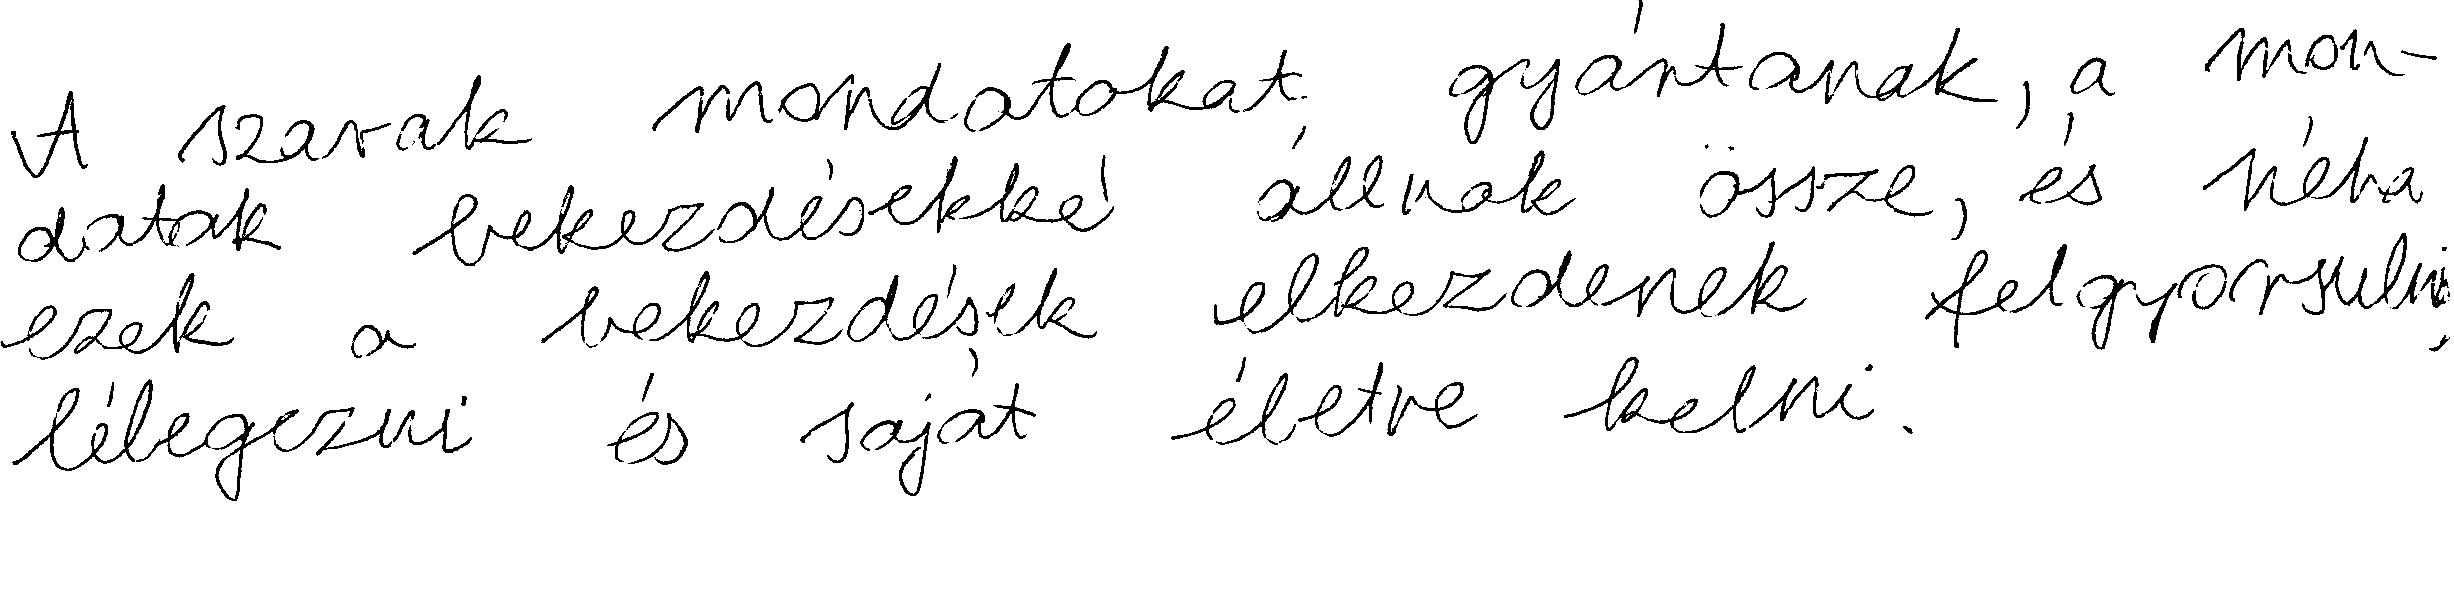 A szavak mondatokat gyártanak, a mon-
datok bekezdésekké állnak össze, és néha
ezek a bekezdések elkezdenek felgyorsulni,
lélegezni és saját életre kelni.